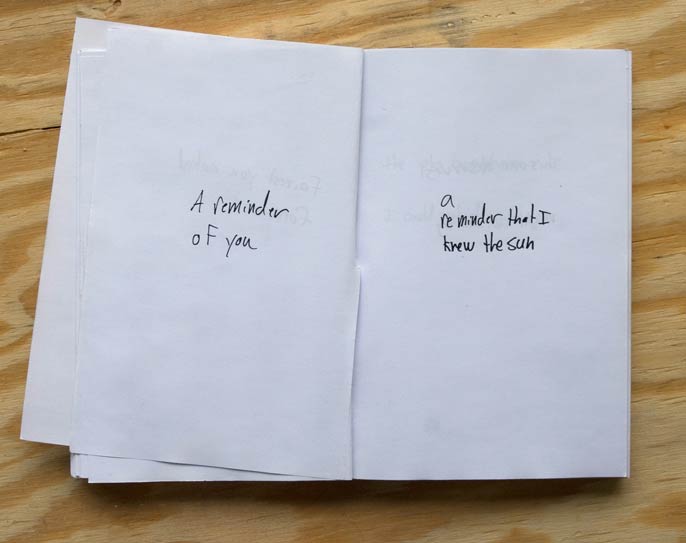 A reminder
of you
a
reminder that I
knew the sun